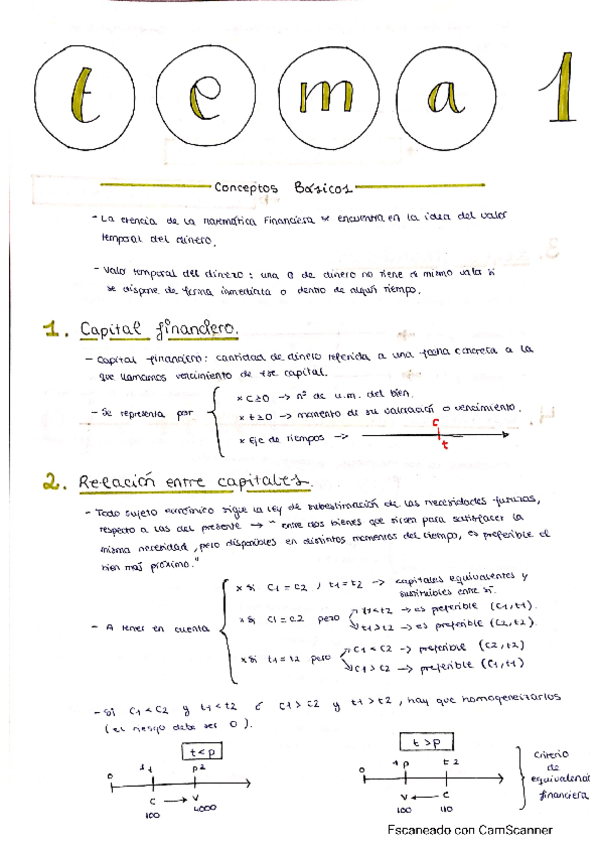 tema 1
Conceptos Básicos
- La esencia de la matemática Financiera se encuentra en la idea del valor
temporal del dinero.
- Valor temporal del dinero: una Q de dinero no tiene el mismo valor si
se dispone de forma inmediata o dentro de algún tiempo.
1. Capital financiero.
- Capital financiero: cantidad de dinero referida a una fecha concreta a la
que llamamos vencimiento de ese capital.
× C≥0 -> nº de u.m. del bien.
- Se representa por
× t≥0 -> momento de su valoración o vencimiento.
× Eje de tiempos ->
C
t
2. Relación entre capitales.
- Todo sujeto económico sigue la ley de subestimación de las necesidades futuras,
respecto a las del presente → " entre dos bienes que sirven para satisfacer la
misma necesidad, pero disponibles en distintos momentos del tiempo, es preferible el
bien más próximo."
× Si C1 = C2 , t1 = t2 -> capitales equivalentes y
sustituibles entre sí.
- A tener en cuenta
× Si C1 = C2 pero t1<t2 -> es preferible (C1,t1).
t1>t2 -> es preferible (C2,t2).
× Si t1 = t2 pero C1 < C2 -> preferible (C2,t2)
C1 > C2 -> preferible (C1,t1)
- Si C1 < C2 y t1 < t2 ó C1 > C2 y t1 > t2 , hay que homogeneizarlos
(el riesgo debe ser 0).
t < p
t > p
0 p2
C → V
0 p t2
V ← C
100 110
Criterio
de
equivalencia
financiera
Escaneado con CamScanner